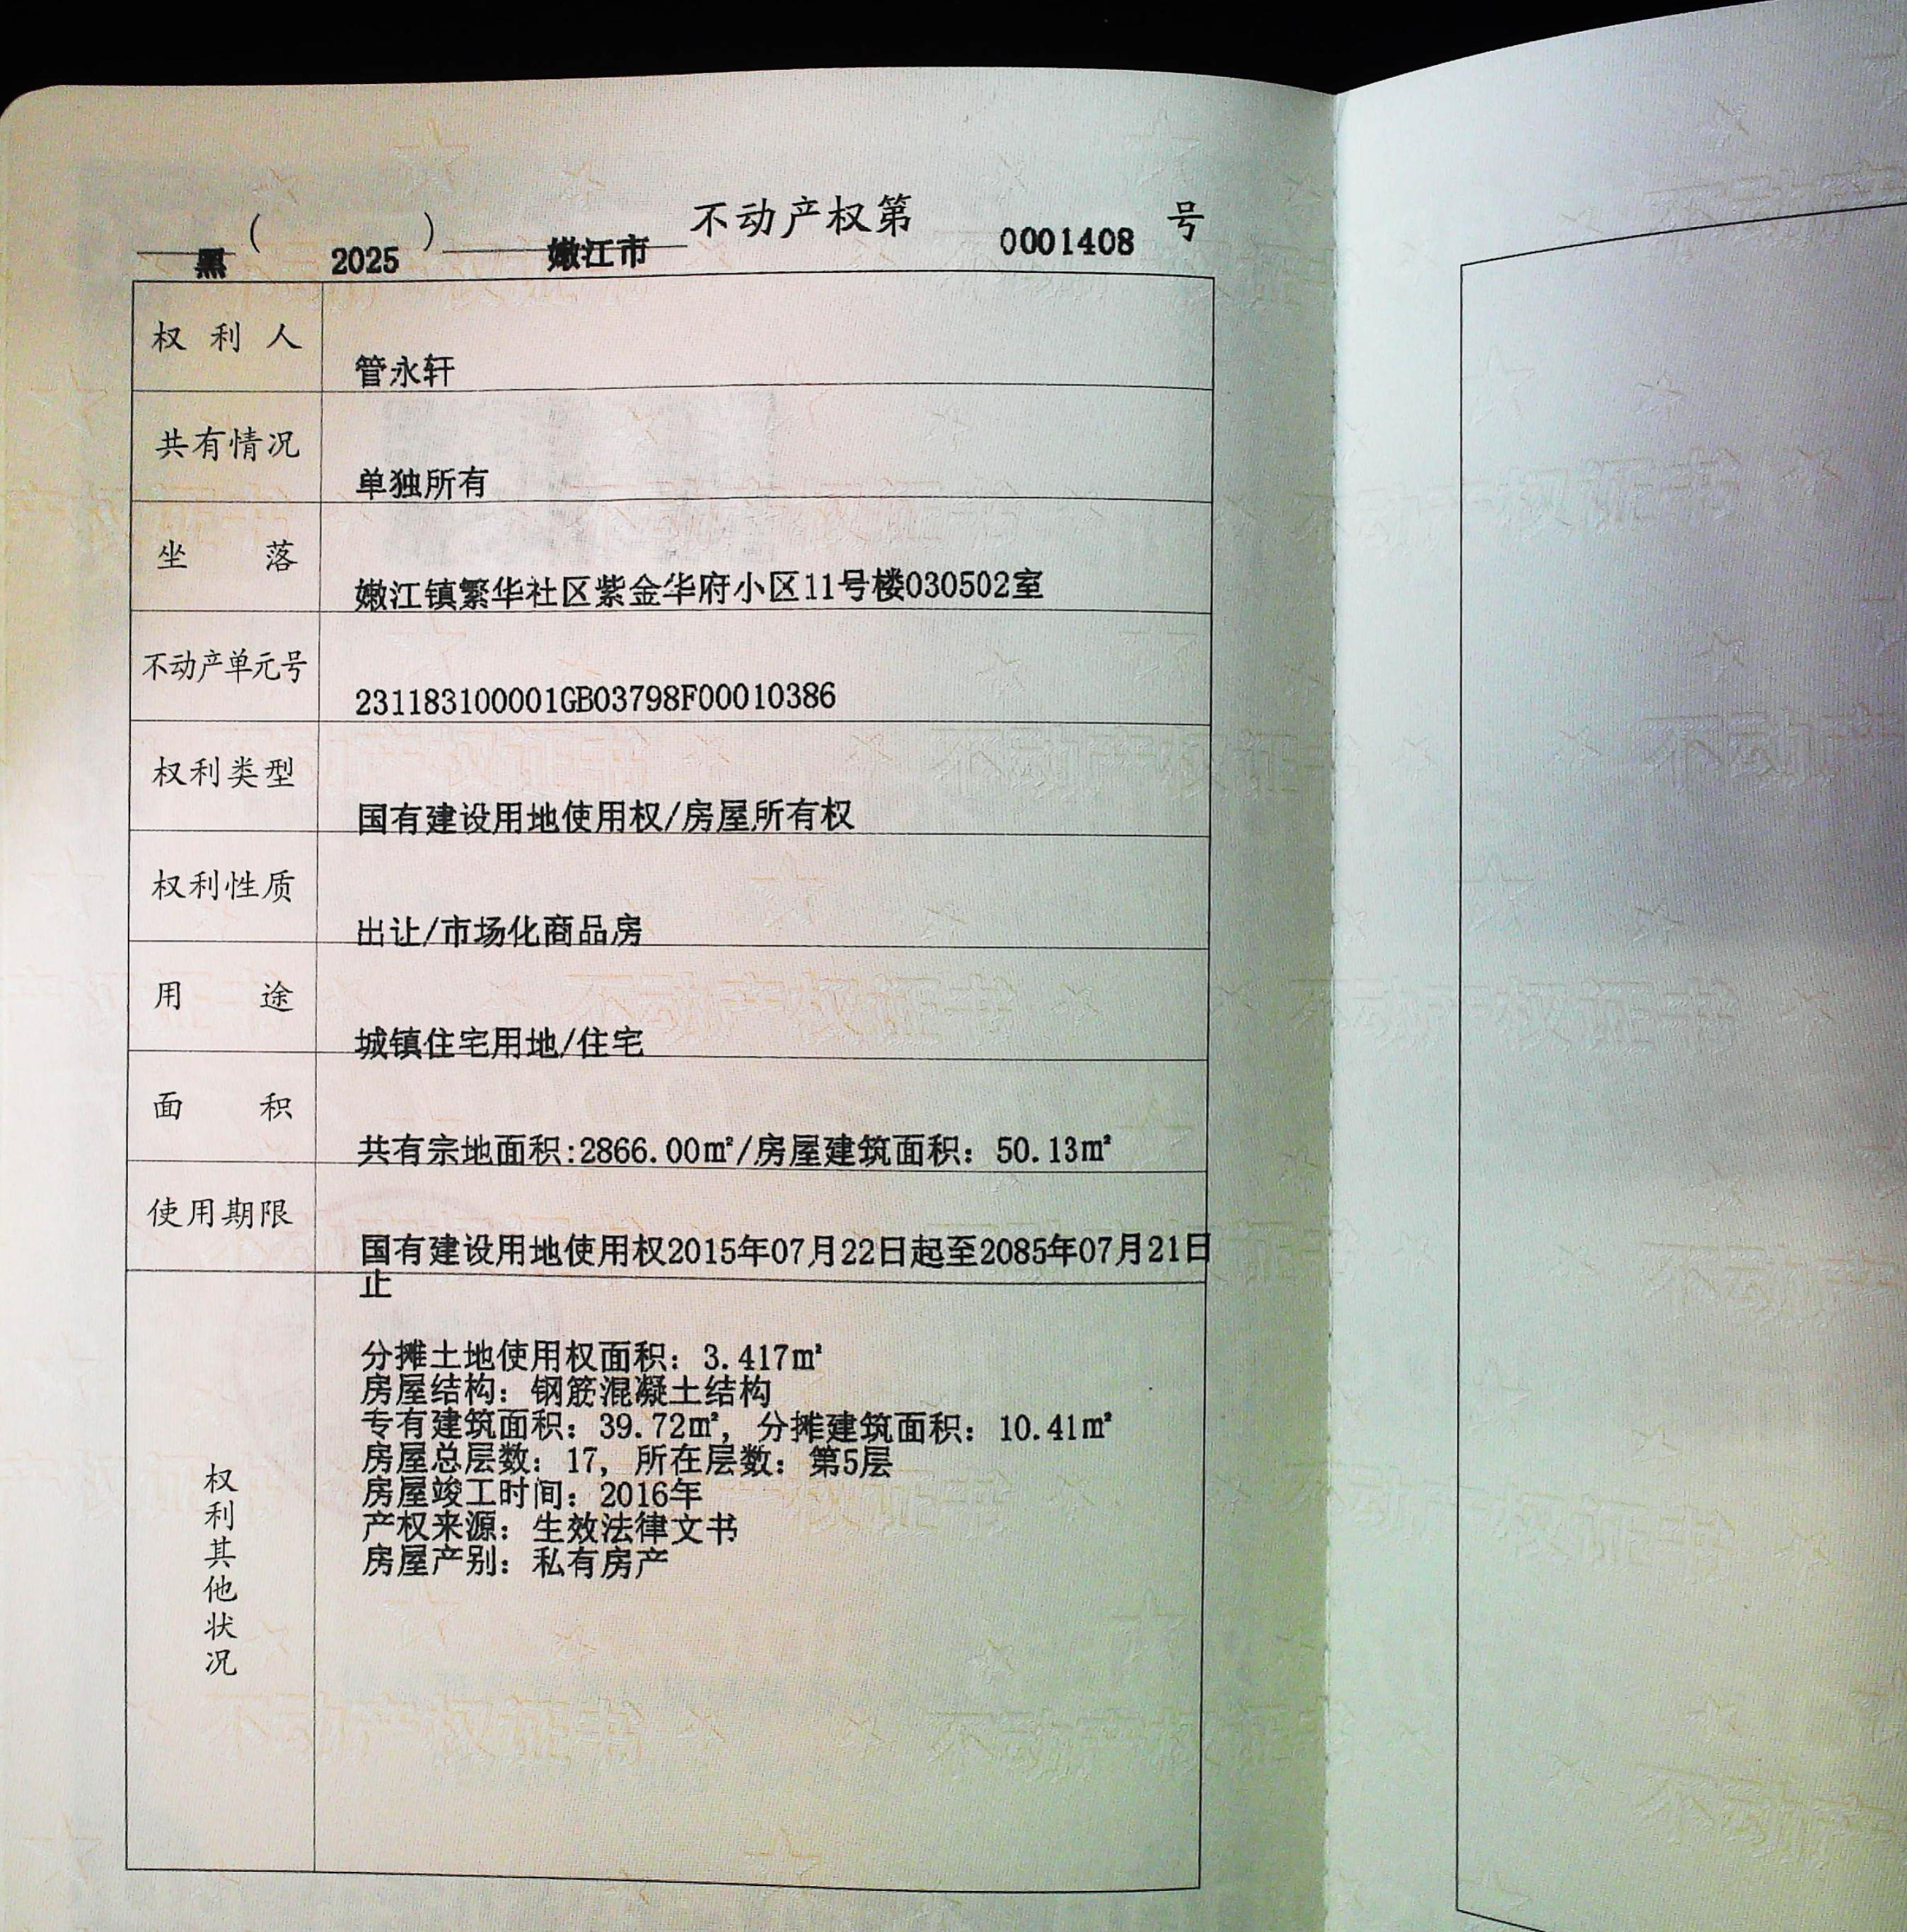 黑（2025）嫩江市不动产权第0001408号
权利人 管永轩
共有情况 单独所有
坐落 嫩江镇繁华社区紫金华府小区11号楼030502室
不动产单元号 231183100001GB03798F00010386
权利类型 国有建设用地使用权/房屋所有权
权利性质 出让/市场化商品房
用途 城镇住宅用地/住宅
面积 共有宗地面积:2866.00㎡/房屋建筑面积：50.13㎡
使用期限 国有建设用地使用权2015年07月22日起至2085年07月21日
止
权利其他状况
分摊土地使用权面积：3.417㎡
房屋结构：钢筋混凝土结构
专有建筑面积：39.72㎡，分摊建筑面积：10.41㎡
房屋总层数：17，所在层数：第5层
房屋竣工时间：2016年
产权来源：生效法律文书
房屋产别：私有房产